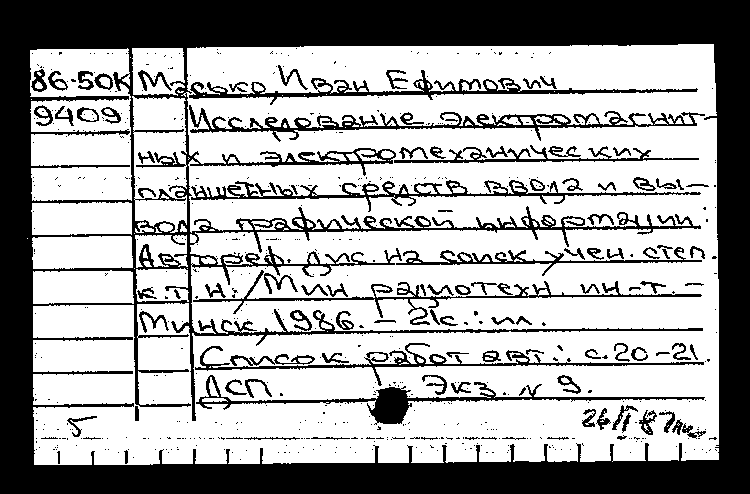 86-50К Масько, Иван Ефимович
9409 Исследование электромагнит-
ных и электромеханических
планшетных средств ввода и вы-
вода графической информации:
Автореф. дис. на соиск. учен. степ.
к.т.н. / Мин. радиотехн. ин-т. -
Минск, 1986. - 21с.: ил.
Список работ авт.: с. 20-21.
ДСП. Экз. N 9.
26 II 87